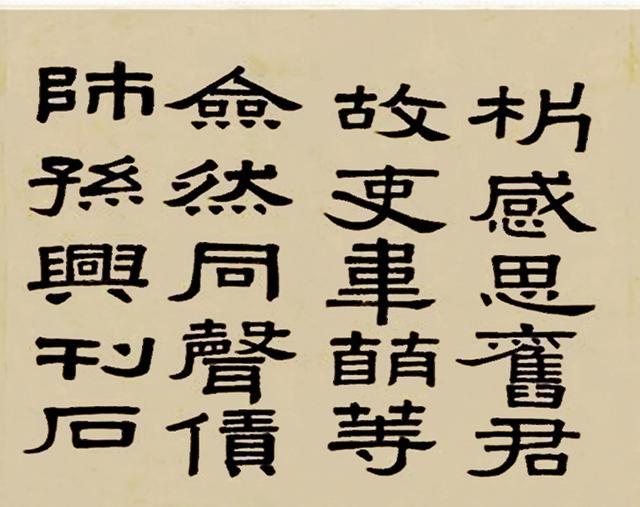 析感思舊君
故吏韋萌等
僉然同聲賃
師孫興刊石